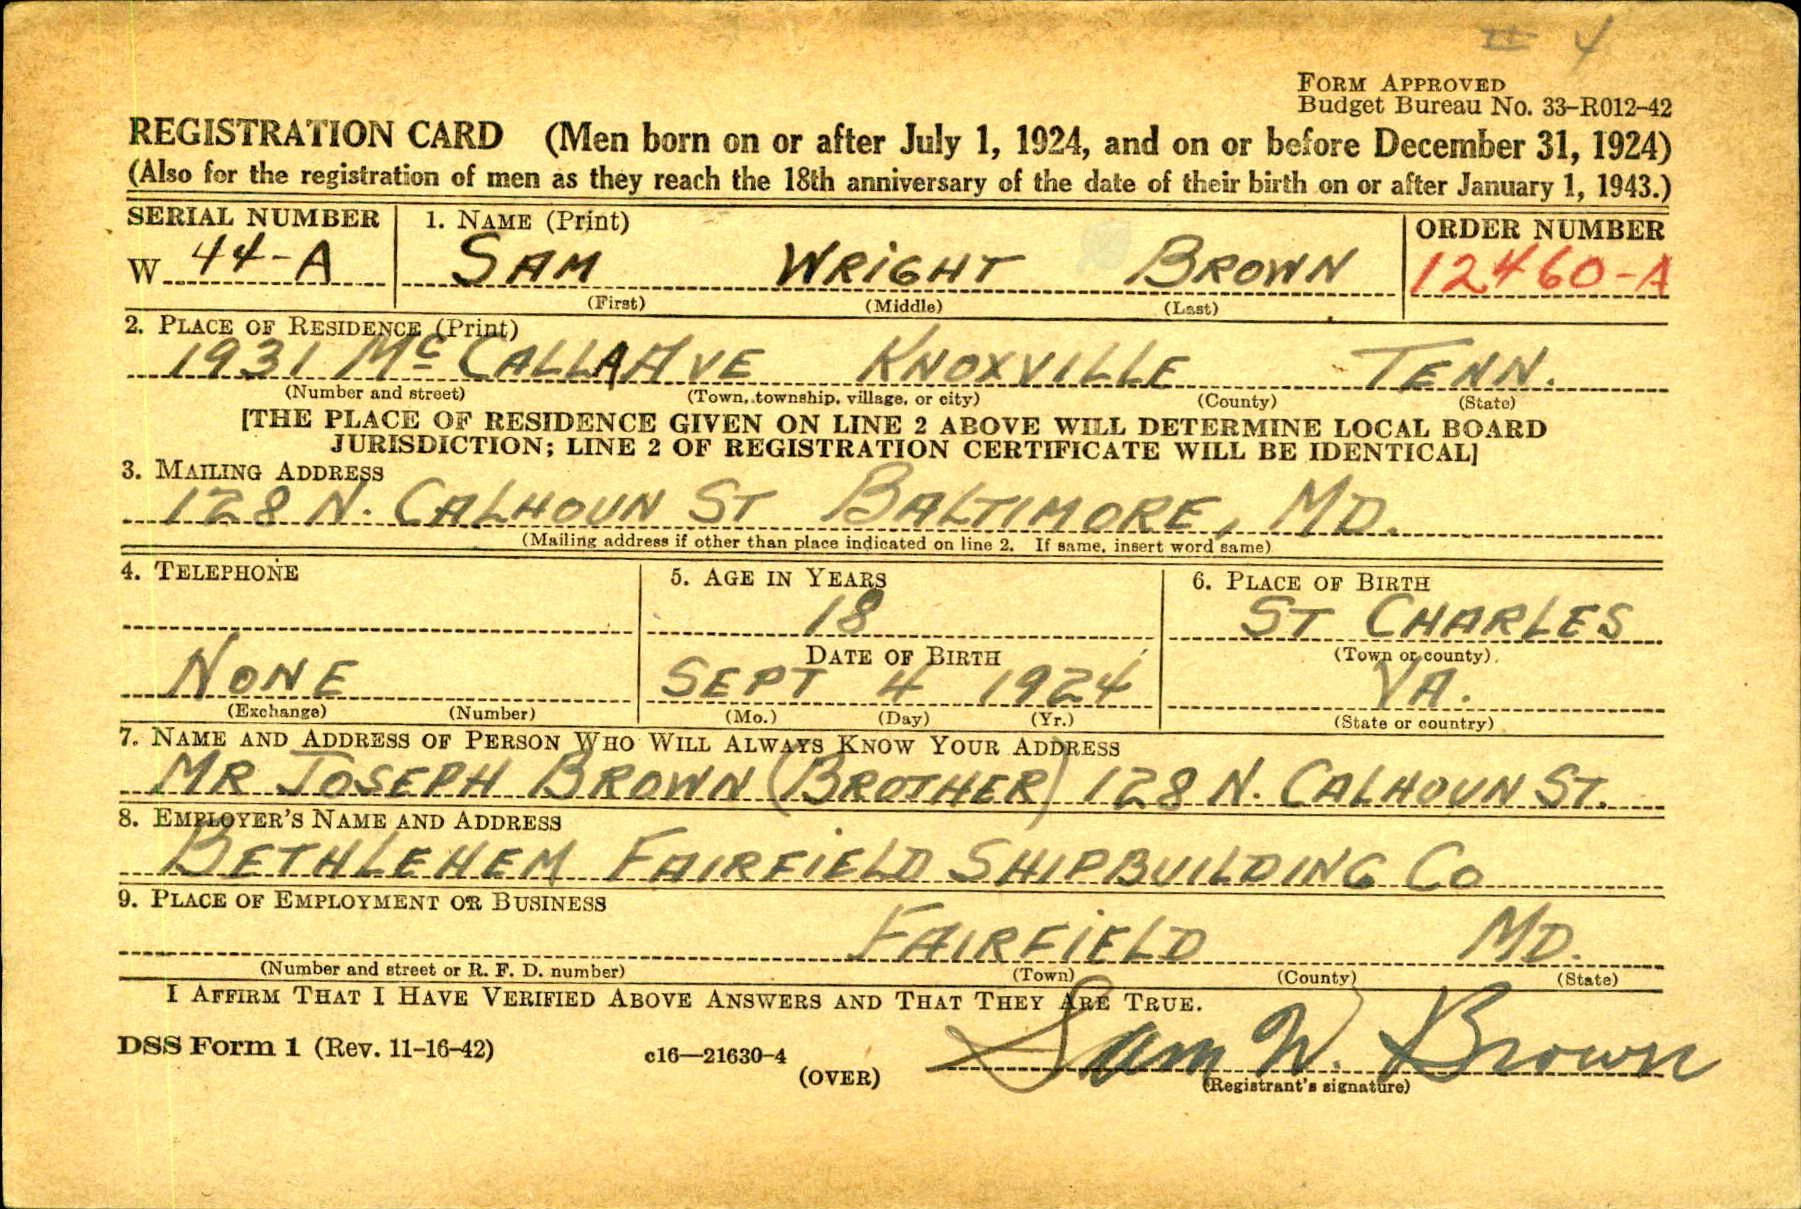 II 4
FORM APPROVED
Budget Bureau No. 33–R012–42
REGISTRATION CARD (Men born on or after July 1, 1924, and on or before December 31, 1924)
(Also for the registration of men as they reach the 18th anniversary of the date of their birth on or after January 1, 1943.)
SERIAL NUMBER 1. NAME (Print) ORDER NUMBER
W 44-A SAM WRIGHT BROWN 12460-A
(First) (Middle) (Last)
2. PLACE OF RESIDENCE (Print)
1931 McCALLA AVE KNOXVILLE TENN.
(Number and street) (Town, township, village, or city) (County) (State)
[THE PLACE OF RESIDENCE GIVEN ON LINE 2 ABOVE WILL DETERMINE LOCAL BOARD
JURISDICTION; LINE 2 OF REGISTRATION CERTIFICATE WILL BE IDENTICAL]
3. MAILING ADDRESS
128 N. CALHOUN ST BALTIMORE, MD.
(Mailing address if other than place indicated on line 2. If same, insert word same)
4. TELEPHONE 5. AGE IN YEARS 6. PLACE OF BIRTH
18 ST CHARLES
DATE OF BIRTH (Town or county)
NONE SEPT 4 1924 VA.
(Exchange) (Number) (Mo.) (Day) (Yr.) (State or country)
7. NAME AND ADDRESS OF PERSON WHO WILL ALWAYS KNOW YOUR ADDRESS
MR JOSEPH BROWN (BROTHER) 128 N. CALHOUN ST.
8. EMPLOYER'S NAME AND ADDRESS
BETHLEHEM FAIRFIELD SHIPBUILDING CO
9. PLACE OF EMPLOYMENT OR BUSINESS
FAIRFIELD MD.
(Number and street or R. F. D. number) (Town) (County) (State)
I AFFIRM THAT I HAVE VERIFIED ABOVE ANSWERS AND THAT THEY ARE TRUE.
DSS Form 1 (Rev. 11-16-42) c16—21630-4 (OVER) Sam W. Brown
(Registrant's signature)